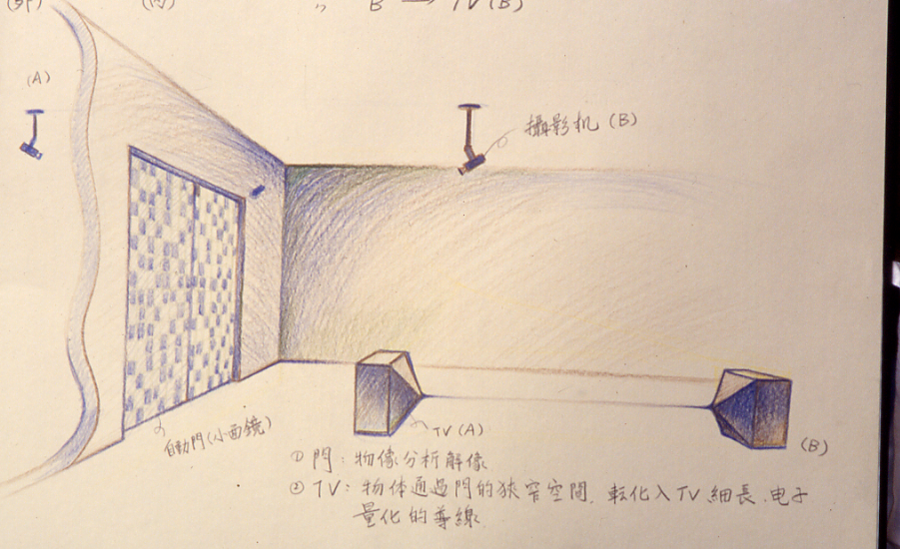 (內) 〃 B → TV(B)
(A)
攝影机 (B)
自動門(小面鏡)
TV (A)
(B)
① 門：物像分析解像
② TV：物体通過門的狹窄空間. 転化入TV 細長.电子
量化的導線